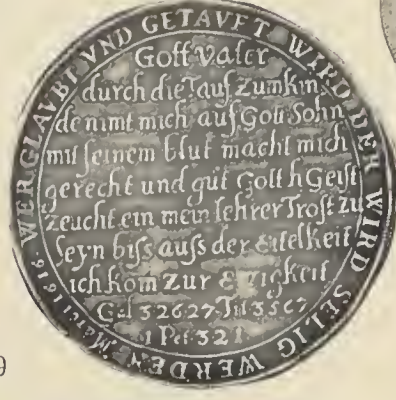 WER GLAVBT VND GETAVFT WIRD DER WIRD SELIG WERDEN Marci 1616.
Gott Vater
durch die Tauf Zum Kin
de nimt mich auf, Gott Sohn
mit seinem blut macht mich
gerecht und gůt Gott h Geist
Zeucht ein mein lehrer Trost zu
seyn biss auss der eitelkeit
ich kom zur Ewigkeit
Gal 32627 Tit 3567
1 Pet 321
9